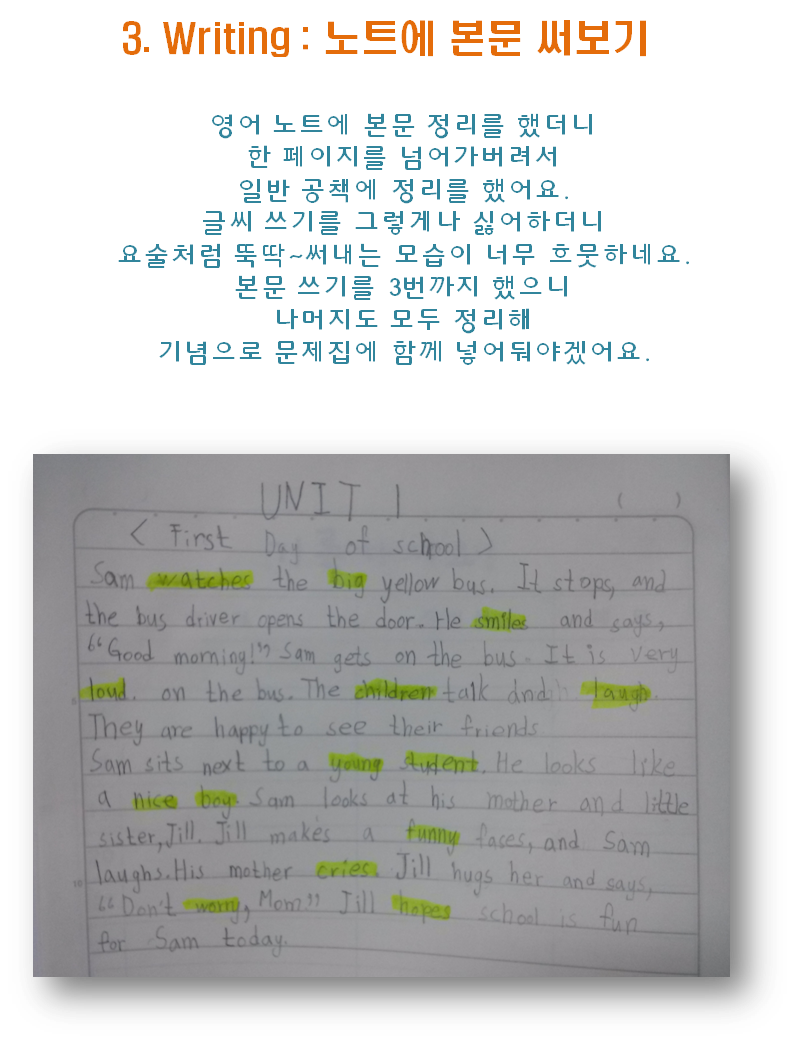 3. Writing : 노트에 본문 써보기
영어 노트에 본문 정리를 했더니
한 페이지를 넘어가버려서
일반 공책에 정리를 했어요.
글씨 쓰기를 그렇게나 싫어하더니
요술처럼 뚝딱~써내는 모습이 너무 흐뭇하네요.
본문 쓰기를 3번까지 했으니
나머지도 모두 정리해
기념으로 문제집에 함께 넣어둬야겠어요.
UNIT 1 ( )
< First Day of school >
Sam watches the big yellow bus. It stops, and
the bus driver opens the door. He smiles and says,
“Good morning!” Sam gets on the bus. It is very
loud. on the bus. The children talk and laugh.
They are happy to see their friends
Sam sits next to a young student. He looks like
a nice boy. Sam looks at his mother and little
sister, Jill. Jill makes a funny faces, and Sam
laughs. His mother cries. Jill hugs her and says,
10 “Don't worry, Mom.” Jill hopes school is fun
for Sam today.